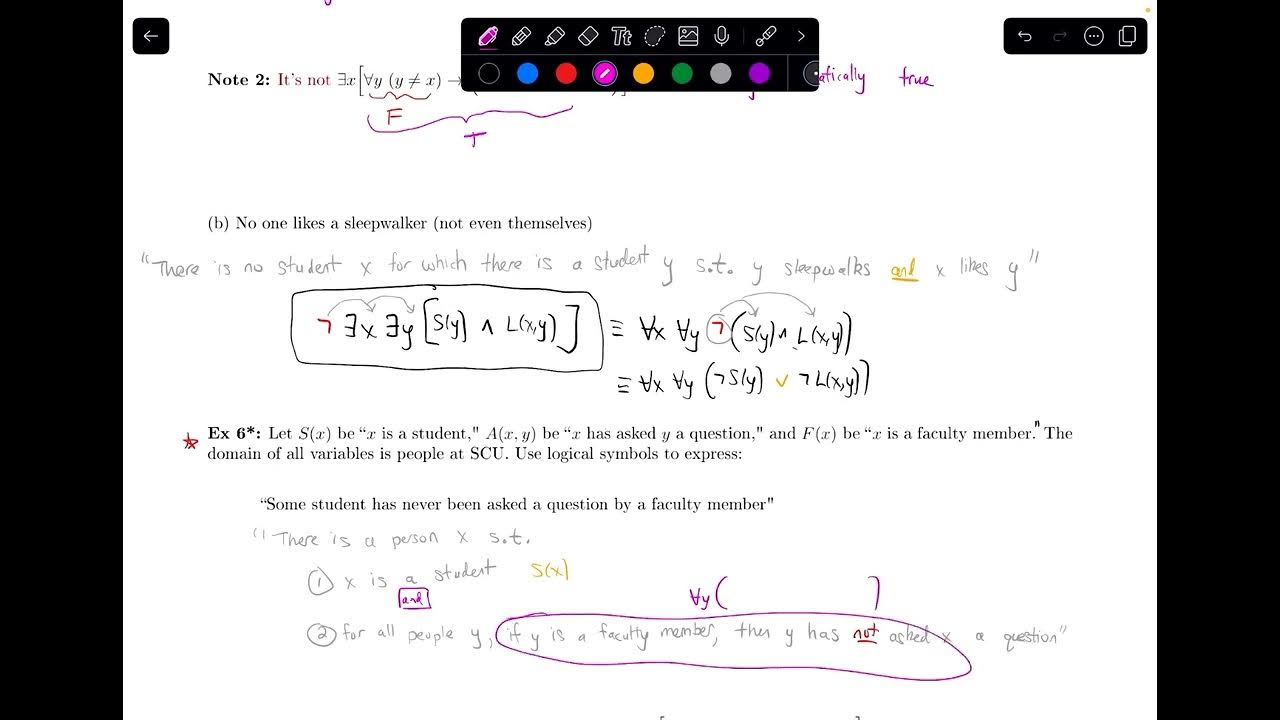 Tt
Note 2: It's not ∃x[∀y (y ≠ x) → atically true
F
T
(b) No one likes a sleepwalker (not even themselves)
"There is no student x for which there is a student y s.t. y sleepwalks and x likes y"
¬ ∃x ∃y [S(y) ∧ L(x,y)] ≡ ∀x ∀y ¬(S(y) ∧ L(x,y))
≡ ∀x ∀y (¬S(y) ∨ ¬L(x,y))
Ex 6*: Let S(x) be “x is a student," A(x, y) be “x has asked y a question," and F(x) be “x is a faculty member." The
domain of all variables is people at SCU. Use logical symbols to express:
“Some student has never been asked a question by a faculty member"
"There is a person x s.t.
① x is a student S(x)
and
∀y( )
② for all people y, if y is a faculty member, then y has not asked x a question"